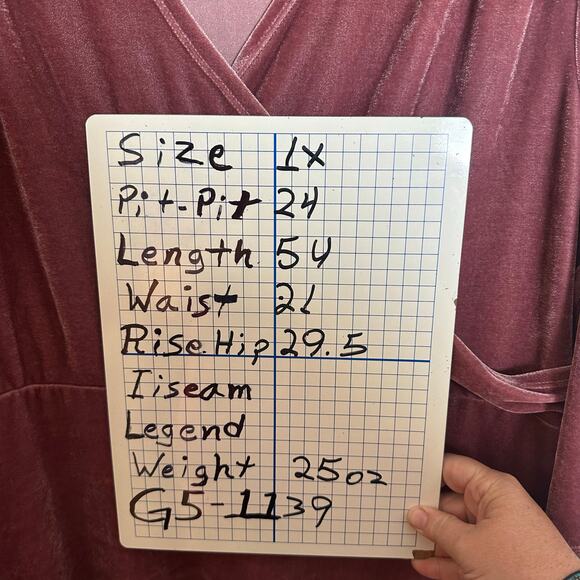 Size 1X
Pit-Pit 24
Length 54
Waist 21
Rise Hip 29.5
Iiseam
Legend
Weight 25oz
G5-1139